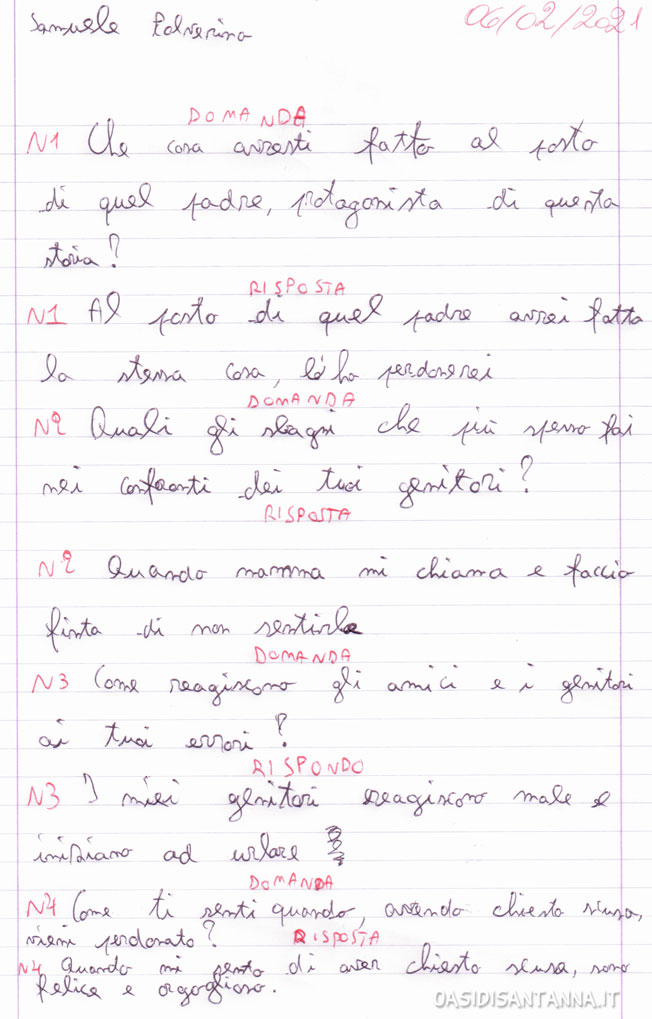 Samuele Polverino
06/02/2021
DOMANDA
N1 Che cosa avresti fatto al posto
di quel padre, protagonista di questa
storia?
RISPOSTA
N1 Al posto di quel padre avrei fatto
la stessa cosa, lo ho perdonerei
DOMANDA
N2 Quali gli sbagni che più spesso fai
nei confronti dei tuoi genitori?
RISPOSTA
N2 Quando mamma mi chiama e faccio
finta di non sentirla
DOMANDA
N3 Come reagiscono gli amici e i genitori
ai tuoi errori?
RISPONDO
N3 I miei genitori reagiscono male e
iniziano ad urlare
DOMANDA
N4 Come ti senti quando, avendo chiesto scusa,
vieni perdonato?
RISPOSTA
N4 Quando mi sento di aver chiesto scusa, sono
felice e orgoglioso.
OASIDISANTANNA.IT